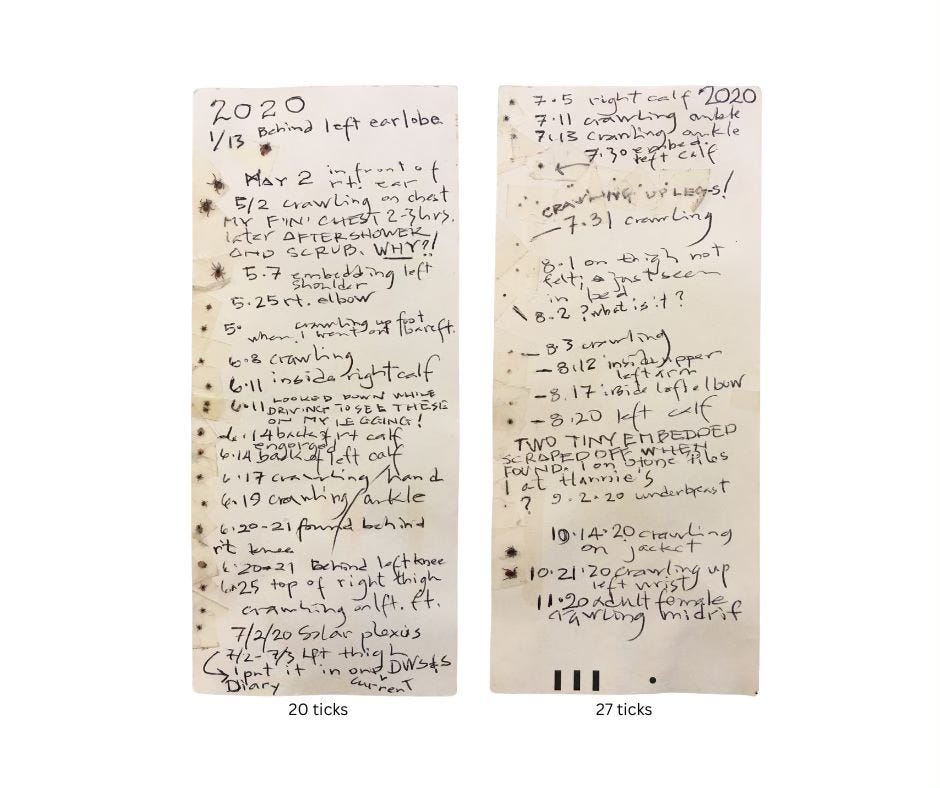 2020
1/13 Behind left earlobe
MAY 2 in front of
rt. ear
5/2 crawling on chest
MY FINI CHEST 2-3 hrs.
later AFTERSHOWER
AND SCRUB. WHY?!
5.7 embedding left
shoulder
5.25 rt. elbow
crawling up foot
when I went out bareft.
6.8 crawling
6.11 inside right calf
6.11 LOOKED DOWN WHILE
DRIVING TO SEE THESE
ON MY LEGGING!
6.14 back of rt calf
engorged
6.14 back of left calf
6.17 crawling/hand
6.19 crawling/ankle
6.20-21 found behind
rt knee
6.20-21 Behind left knee
6.25 top of right thigh
crawling on lft. ft.
7/2/20 Solar plexus
7/2-7/3 Lft thigh
I put it in one DWS&S
Diary current
20 ticks
7.5 right calf 2020
7.11 crawling ankle
7.13 crawling ankle
7.30 embed.
left calf
CRAWLING UP LEGS!
7.31 crawling
8.1 on thigh not
felt; just seen
in bed
8.2 ? what is it?
8.3 crawling
8.12 inside upper
left arm
8.17 inside left elbow
8.20 left calf
TWO TINY EMBEDDED
SCRAPED OFF WHEN
FOUND. 1 on Stone Tiles
1 at Hannie's
? 9.2.20 underbreast
10.14.20 crawling
on jacket
10.21.20 crawling up
left wrist
11.20 adult female
crawling midrif
27 ticks